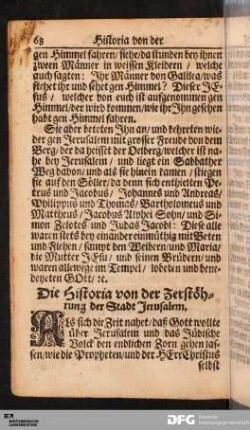 68 Historia von der
gen Himmel fahren/ siehe/ da stunden bey ihnen
zween Männer in weissen Kleidern/ welche
auch sagten: Ihr Männer von Galilea/ was
stehet ihr und sehet gen Himmel? Dieser JE-
sus/ welcher von euch ist auffgenommen gen
Himmel/ der wird kommen/ wie ihr Ihn gesehen
habt gen Himmel fahren.
Sie aber beteten Ihn an/ und kehreten wie-
der gen Jerusalem mit grosser Freude von dem
Berg/ der da heisset der Oelberg/ welcher ist na-
he bey Jerusalem/ und liegt ein Sabbather
Weg davon/ und als sie hinein kamen/ stiegen
sie auf den Söller/ da denn sich enthielten Pe-
trus und Jacobus/ Johannes und Andreas/
Philippus und Thomas/ Bartholomeus und
Mattheus/ Jacobus Alphei Sohn/ und Si-
mon Zelotes und Judas Jacobi: Diese alle
waren stets bey einander einmüthig mit Beten
und Flehen/ sampt den Weibern/ und Maria/
die Mutter JEsu/ und seinen Brüdern/ und
waren allewege im Tempel/ lobeten und bene-
deyeten GOtt/ ꝛc.
Die Historia von der Zerstöh-
rung der Stadt Jerusalem.
ALs sich die Zeit nahet/ daß Gott wollte
über Jerusalem und das Jüdische
Volck den endlichen Zorn gehen las-
sen/ wie die Propheten/ und der HErr Christus
selbst
DFG